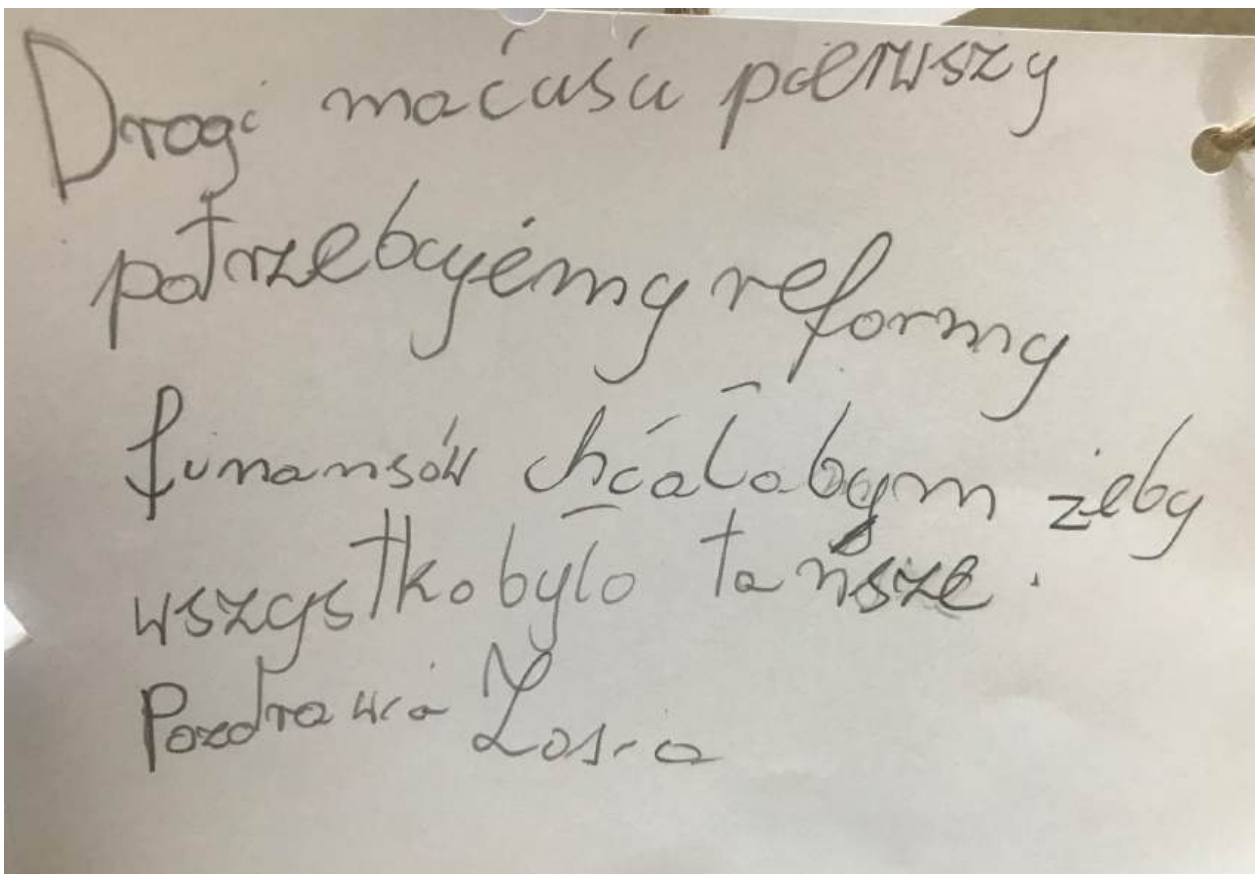 Drogi maćuśu pierwszy
potrzebujemy reformy
finansów chćałabym żeby
wszystko było tańsze.
Pozdrawia Zosia